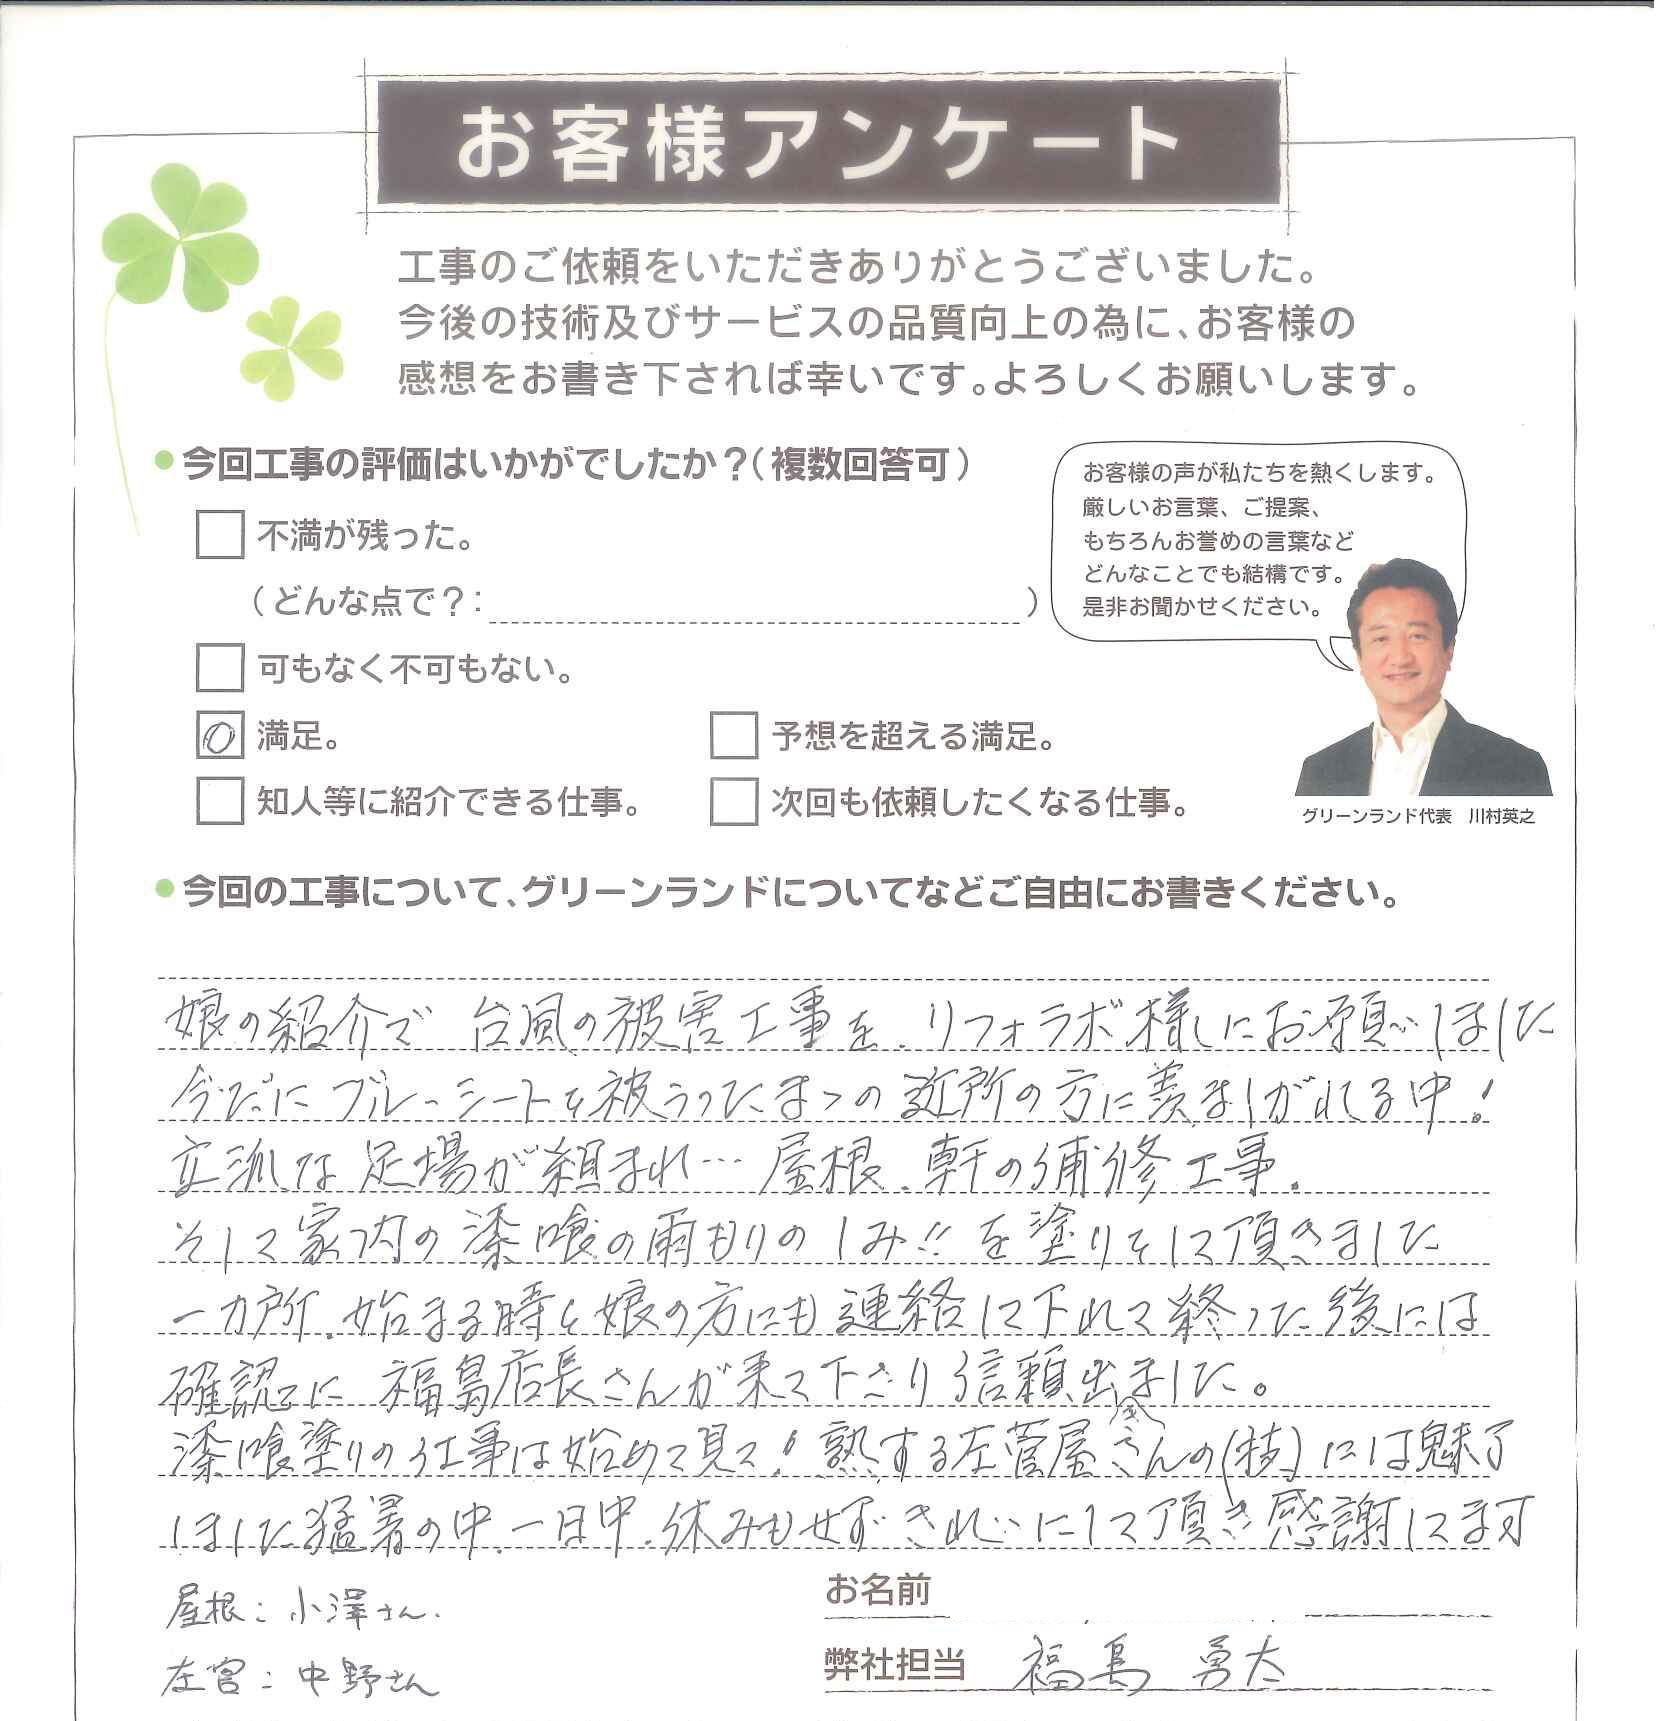 お客様アンケート
工事のご依頼をいただきありがとうございました。
今後の技術及びサービスの品質向上の為に、お客様の
感想をお書き下されば幸いです。よろしくお願いします。
今回工事の評価はいかがでしたか？（複数回答可）
不満が残った。
（どんな点で？：　）
可もなく不可もない。
○ 満足。
予想を超える満足。
知人等に紹介できる仕事。
次回も依頼したくなる仕事。
お客様の声が私たちを熱くします。
厳しいお言葉、ご提案、
もちろんお誉めの言葉など
どんなことでも結構です。
是非お聞かせください。
グリーンランド代表　川村英之
今回の工事について、グリーンランドについてなどご自由にお書きください。
娘の紹介で 台風の被害工事を、リフォラボ様にお願いしました
今だに ブルーシートを被ったまゝの 近所の方に羨ましがれる中！
立派な 足場が組まれ… 屋根、軒の補修工事、
そして家内の漆喰の雨もりのしみ!!を塗りそして頂きました
一カ所、始まる時も娘の方にも連絡して下れて終った後には
確認に 福島店長さんが来て下さり信頼出きました。
漆喰塗りの仕事は始めて見て！熟する左菅屋さんの(技)には魅了
しました猛暑の中、一日中、休みもせず きれいにして頂き感謝してます
屋根：小澤さん、
左官：中野さん
お名前
弊社担当 福島 勇太